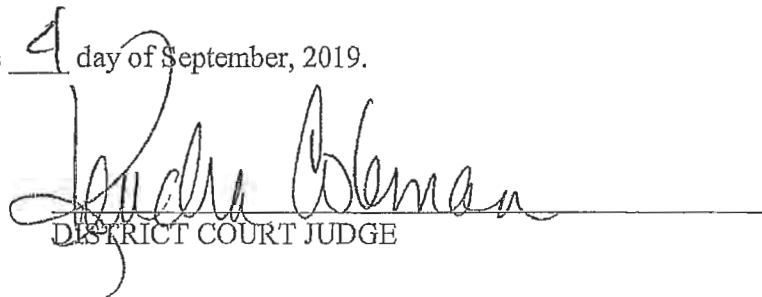 day of September, 2019.
Kendra Coleman
DISTRICT COURT JUDGE